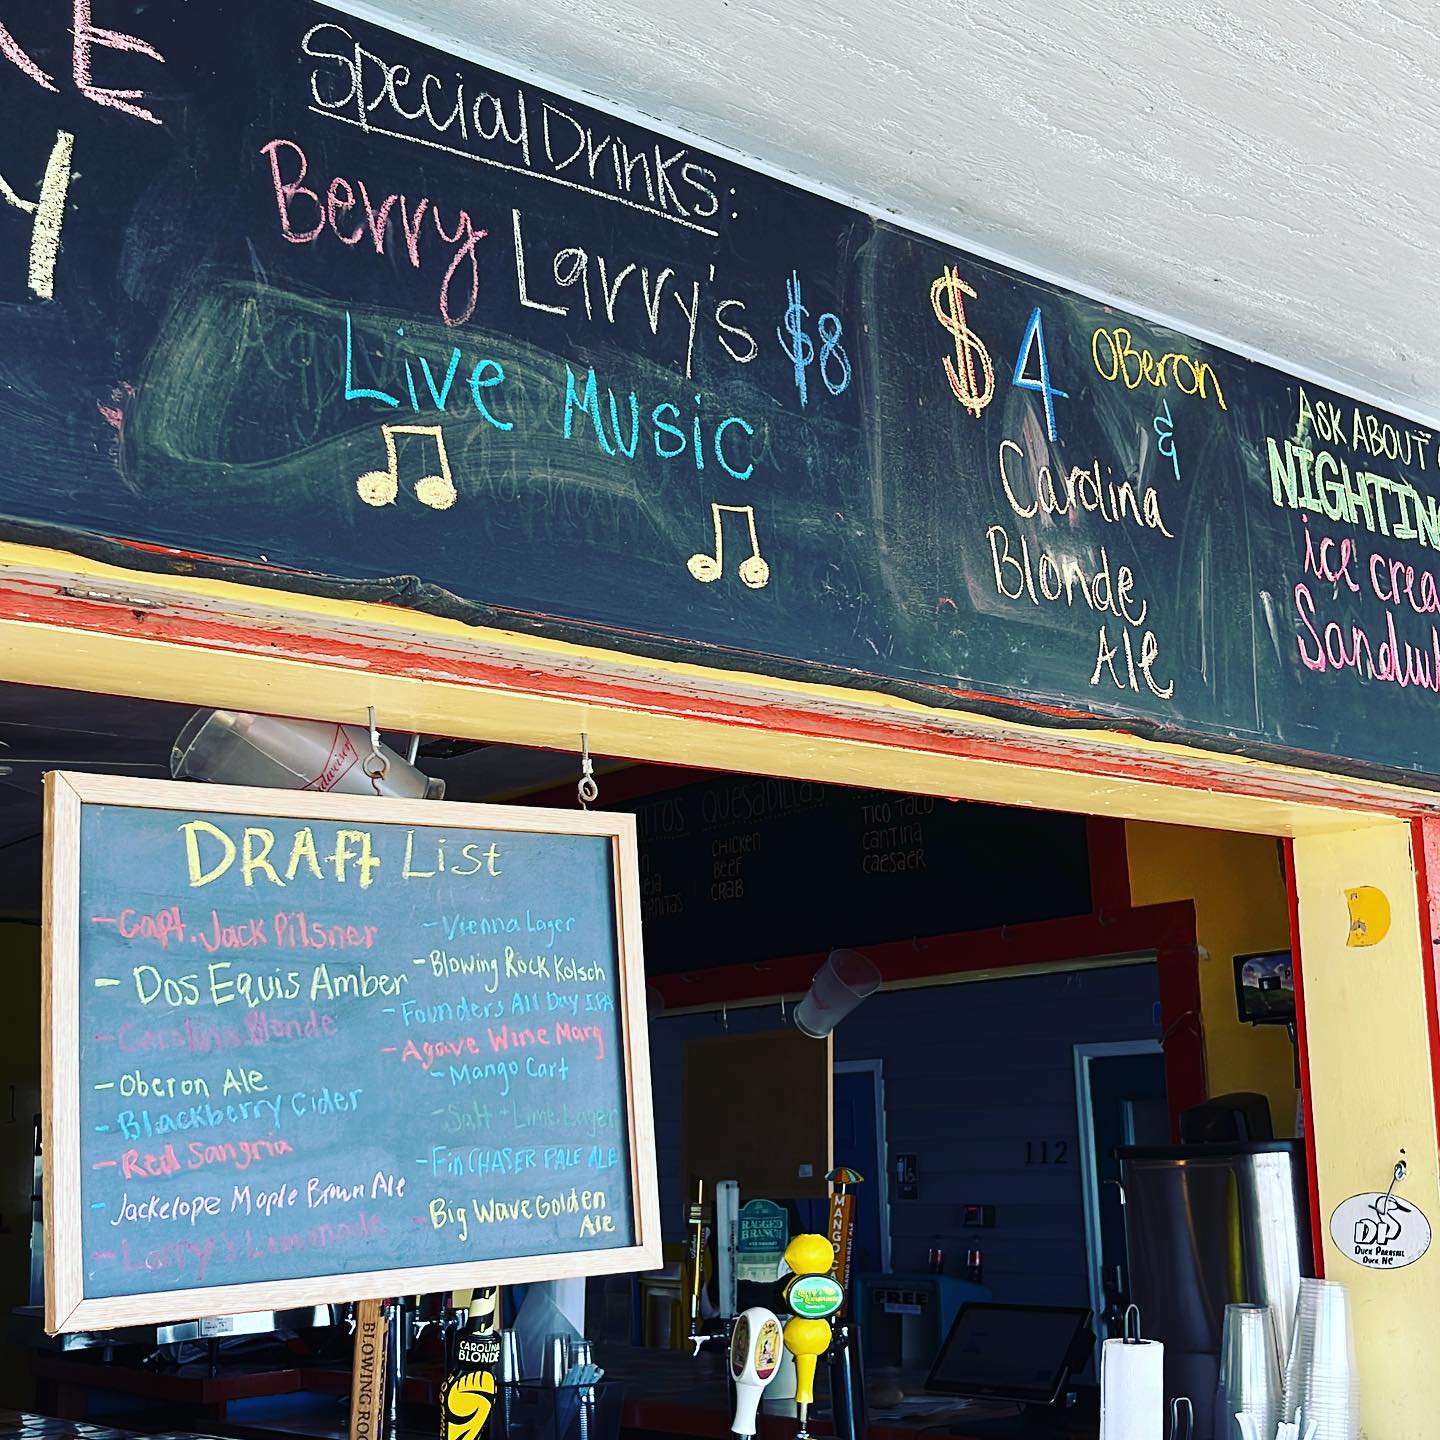 KE
Y
Special Drinks:
Berry Larry's $8
Live Music
$4 OBeron
&
Carolina
Blonde
Ale
ASK ABOUT
NIGHTIN
ice crea
Sandwi
DRAft List
- Capt. Jack Pilsner
- Dos Equis Amber
- Carolina Blonde
- Oberon Ale
- Blackberry Cider
- Red Sangria
- Jackelope Maple Brown Ale
- Larry's Lemonade
- Vienna Lager
- Blowing Rock Kolsch
- Founders All Day IPA
- Agave Wine Marg
- Mango Cart
- Salt + Lime Lager
- Fin CHASER PALE ALE
- Big Wave Golden
Ale
QUESADILLAS
CHICKEN
BEEF
CRAB
TICO TACO
CANTINA
CAESAER
112
RAGGED
BRANCH
MANGO
FREE
CAROLINA
BLONDE
BLOWING ROC
DP
DUCK PARASAIL
DUCK, NC